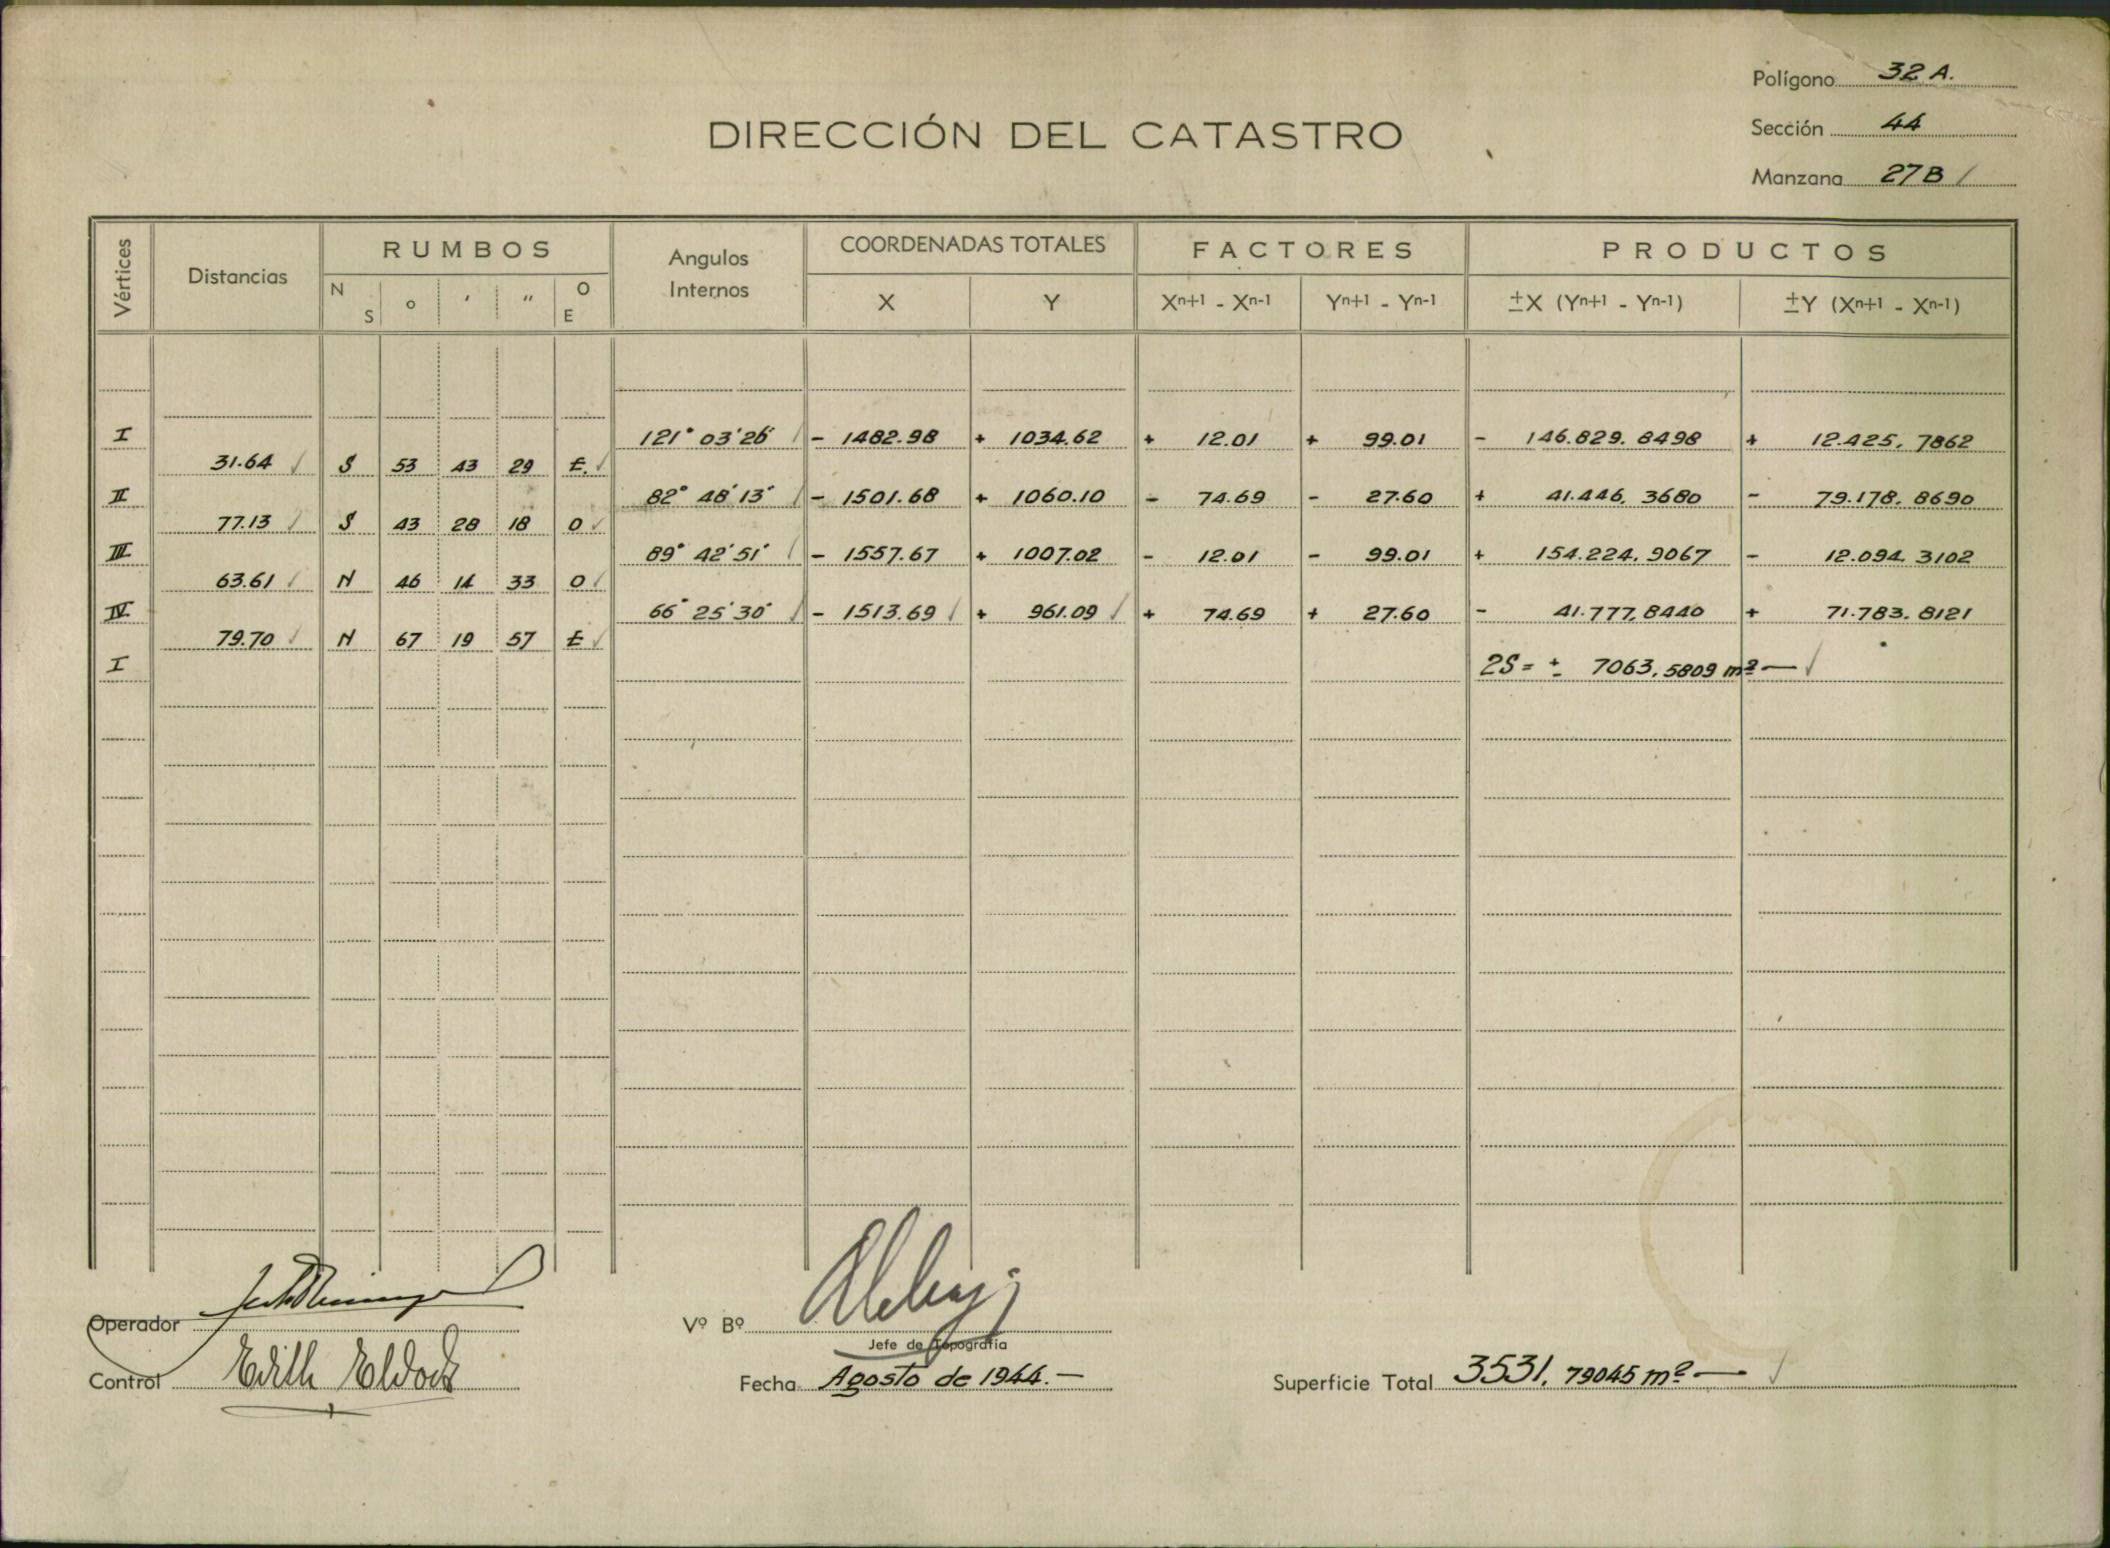 Polígono 32 A.
DIRECCIÓN DEL CATASTRO
Sección 44
Manzana 27B /
Vértices Distancias RUMBOS Angulos Internos COORDENADAS TOTALES FACTORES PRODUCTOS
N S ° ′ ″ O E X Y Xⁿ⁺¹ - Xⁿ⁻¹ Yⁿ⁺¹ - Yⁿ⁻¹ ±X (Yⁿ⁺¹ - Yⁿ⁻¹) ±Y (Xⁿ⁺¹ - Xⁿ⁻¹)
I 121° 03' 26" - 1482.98 + 1034.62 + 12.01 + 99.01 - 146.829.8498 + 12.425.7862
31.64 S 53 43 29 E.
II 82° 48' 13" - 1501.68 + 1060.10 - 74.69 - 27.60 + 41.446.3680 - 79.178.8690
77.13 S 43 28 18 O
III 89° 42' 51" - 1557.67 + 1007.02 - 12.01 - 99.01 + 154.224.9067 - 12.094.3102
63.61 N 46 14 33 O
IV 66° 25' 30" - 1513.69 + 961.09 + 74.69 + 27.60 - 41.777.8440 + 71.783.8121
79.70 N 67 19 57 E
I 2S = ± 7063.5809 m² —
Operador
Vº Bº
Jefe de Topografía
Control Edith
Fecha Agosto de 1944.—
Superficie Total 3531.79045 m² —